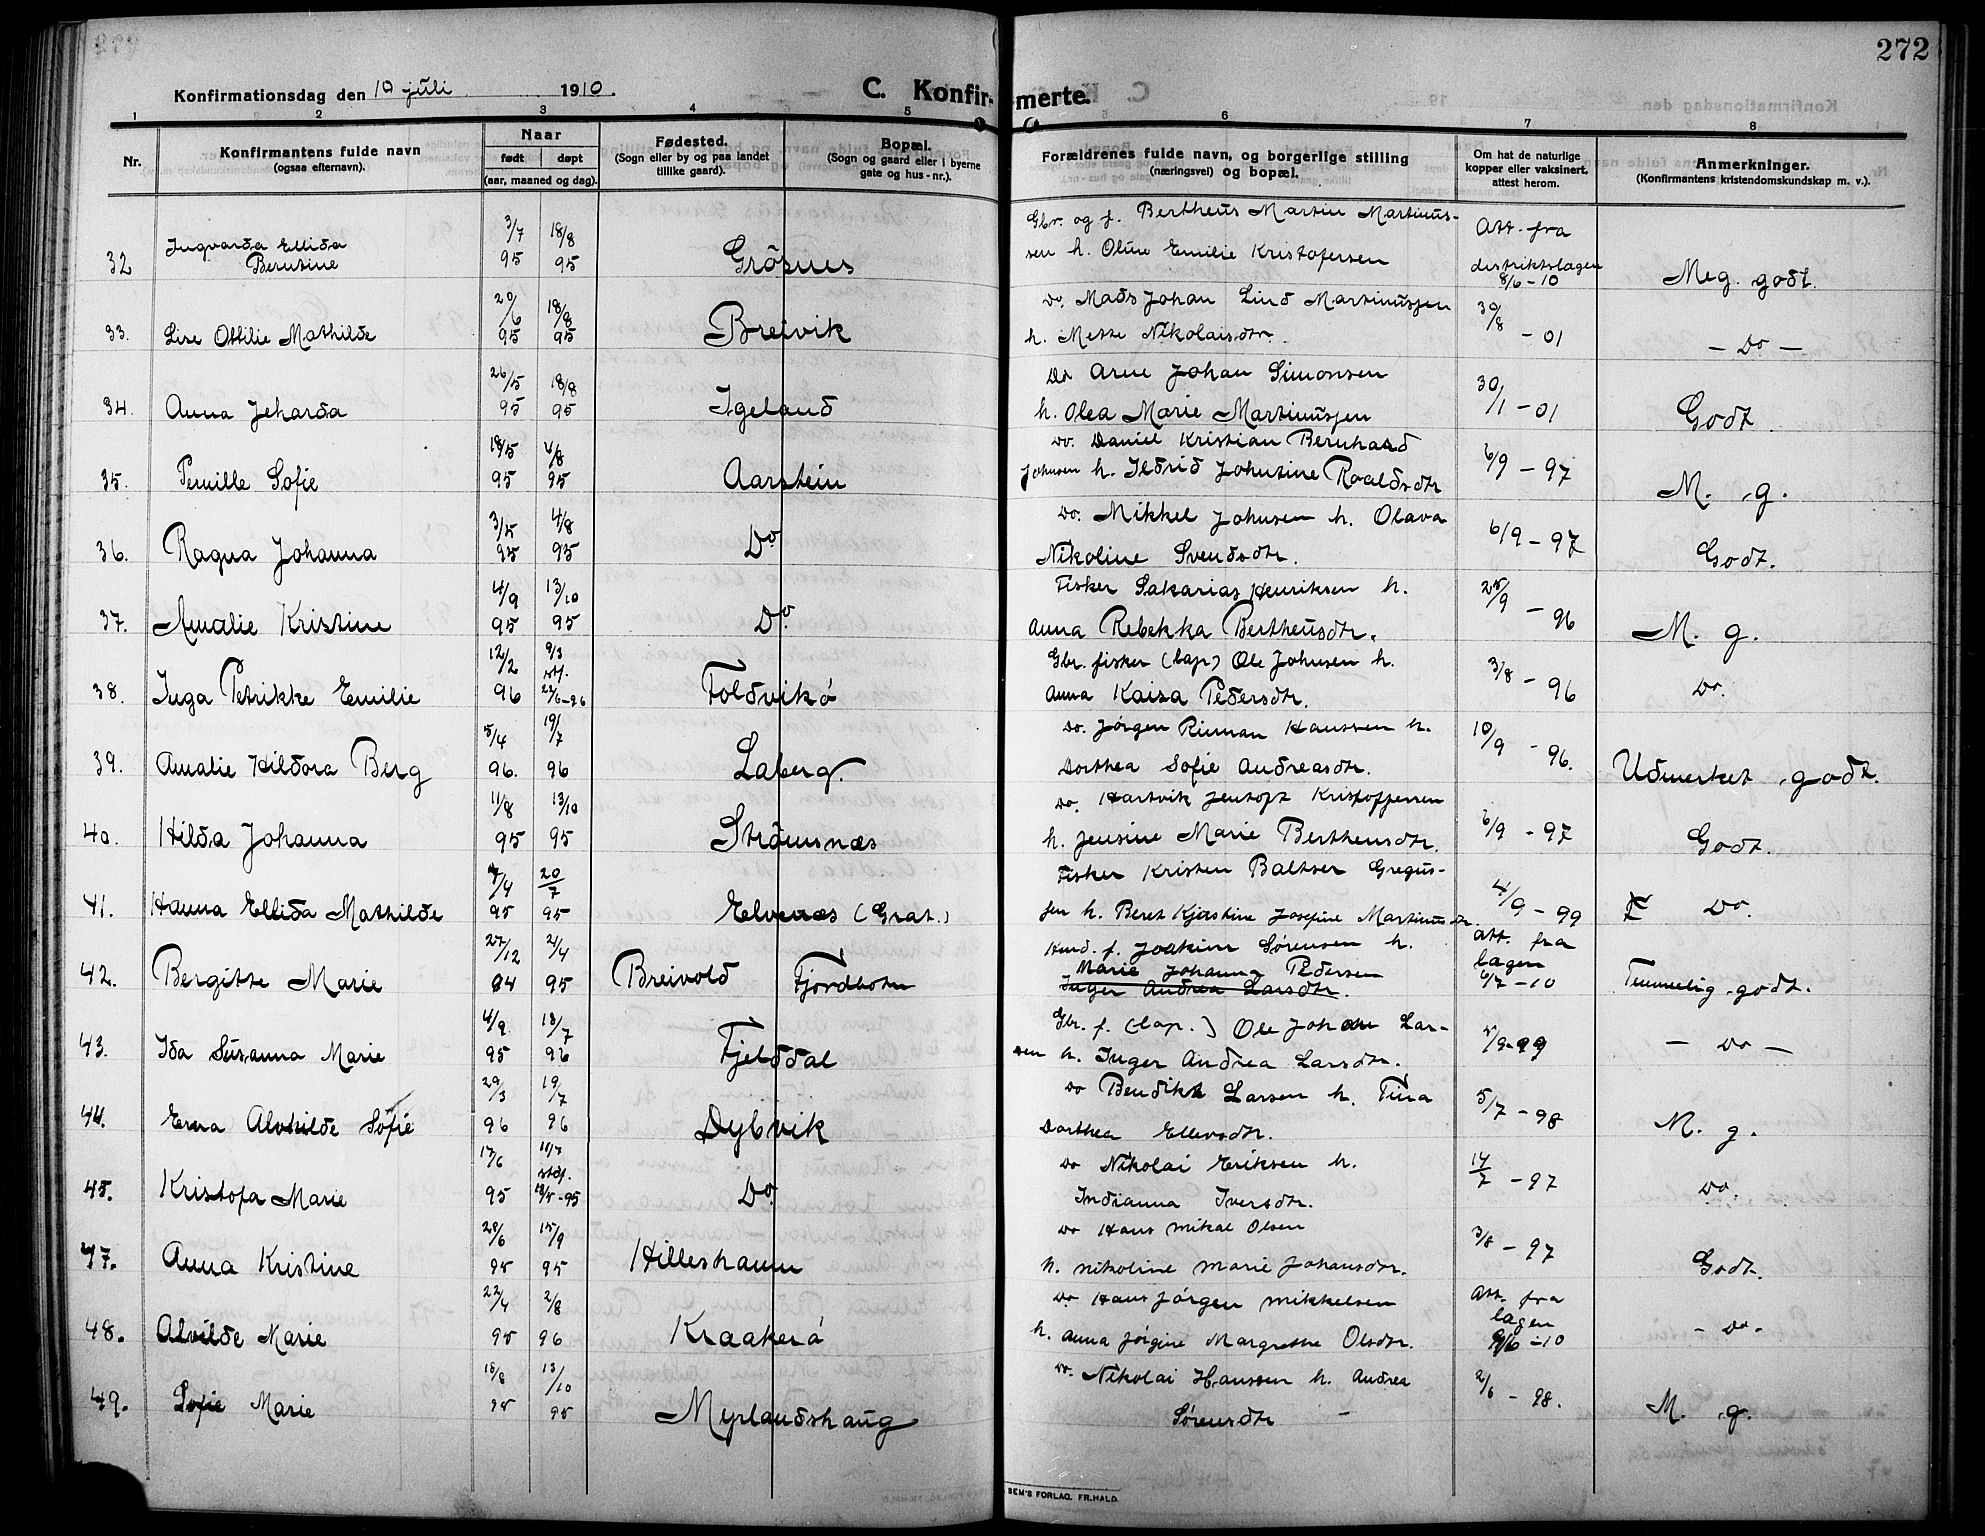 272
Konfirmationsdag den 10 juli 1910.
C. Konfirmerte.
1 2 3 4 5 6 7 8
Nr.
Konfirmantens fulde navn
(ogsaa efternavn).
Naar
født døpt
(aar, maaned og dag).
Fødested.
(Sogn eller by og paa landet
tillike gaard).
Bopæl.
(Sogn og gaard eller i byerne
gate og hus-nr.).
Forældrenes fulde navn, og borgerlige stilling
(næringsvei) og bopæl.
Om hat de naturlige
kopper eller vaksinert,
attest herom.
Anmerkninger.
(Konfirmantens kristendomskundskap m. v.).
32 Ingvarda Ellida
Berntine
3/7 95 18/8 95 Grøsnes
Gbr. og f. Bertheus Martin Martinus-
sen h. Oline Emilie Kristofersen
Att. fra
distriktslægen
8/6-10
Meg. godt.
33. Lise Ottilie Mathilde 20/6 95 18/8 95 Breivik
Do. Mads Johan Lind Martinussen
h. Mette Nikolaisdtr.
30/8 - 01
- Do -
34. Anna Jeharda 26/5 95 18/8 95 Igeland
Do Arne Johan Simonsen
h. Olea Marie Martinussen
30/1 - 01
Godt.
35. Pernille Sofie 18/5 95 4/8 95 Aarstein
Do. Daniel Kristian Bernhard
Johnsen h. Ildrid Johntine Roaldsdtr
6/9 - 97
M. g.
36. Ragna Johanna 3/5 95 4/8 95 Do
Do. Mikkel Johnsen h. Olava
Nikoline Svendsdtr.
6/9 - 97
Godt.
37. Amalie Kristine 4/9 95 13/10 95 Do.
Fisker Sakarias Henriksen h.
Anna Rebekka Bertheusdtr.
25/9 - 96
M. g.
38. Inga Petrikke Emilie 12/2 96 9/3 stf. 25/6-96 Foldvikø
Gbr. fisker (lap) Ole Johnsen h.
Anna Kaisa Pedersdtr.
3/8 - 96
Do.
39. Amalie Hildora Berg 5/4 96. 19/7 96 Laberg.
Do. Jørgen Rinnan Hanssen h.
Dorthea Sofie Andreasdtr.
10/9 - 96.
Udmerket godt.
40. Hilda Johanna 11/8 95 13/10 95 Strømnæs
Do. Hartvik Jentoft Kristoffersen
h. Jensine Marie Bertheusdtr.
6/9 - 97
Godt.
41. Hanna Ellida Mathilde 7/4 95 20/7 95 Elvenæs (Grat.)
Fisker Kristen Baltser Gregus-
sen h. Beret Kjerstine Josefine Martinusdtr
4/9 - 99
Do.
42. Bergitte Marie 27/12 94 21/4 95 Breivold Fjordbotn
Kmd. f. Joakim Sørensen h.
Marie Johanna Pedersen
Inger Andrea Larsdtr.
Att. fra
lægen
6/7-10
Temmelig godt.
43. Ida Susanna Marie 4/9 95 18/7 96 Fjelddal
Gbr. f. (lap.) Ole Johan Lar-
sen h. Inger Andrea Larsdtr.
5/9-99
- Do -
44. Erna Alvhilde Sofie 29/3 96 19/7 96 Dybvik
Do Bendikt Larsen h. Tina
Dorthea Ellevsdtr.
5/7 - 98
M. g.
45. Kristofa Marie 17/6 95 stdf. 18/8-95 Do
Do Nikolai Eriksen h.
Indianna Iversdtr.
14/7 - 97
Do.
47. Anna Kristine 28/6 95 15/9 95 Hilleshamn
Do Hans Mikal Olsen
h. Nikoline Marie Johansdtr.
3/8 - 97
Godt.
48. Alvilde Marie 22/4 95 2/8 96 Kraakerø
Do Hans Jørgen Mikkelsen
h. Anna Jørgine Margrethe Olsdtr.
Att. fra
lægen
9/6-10
- Do -
49. Sofie Marie 18/8 95 13/10 95 Myrlandshaug
Do. Nikolai Hanssen h. Andrea
Sørensdtr -
2/6 - 98.
M. g.
SEM'S FORLAG. FR.HALD.